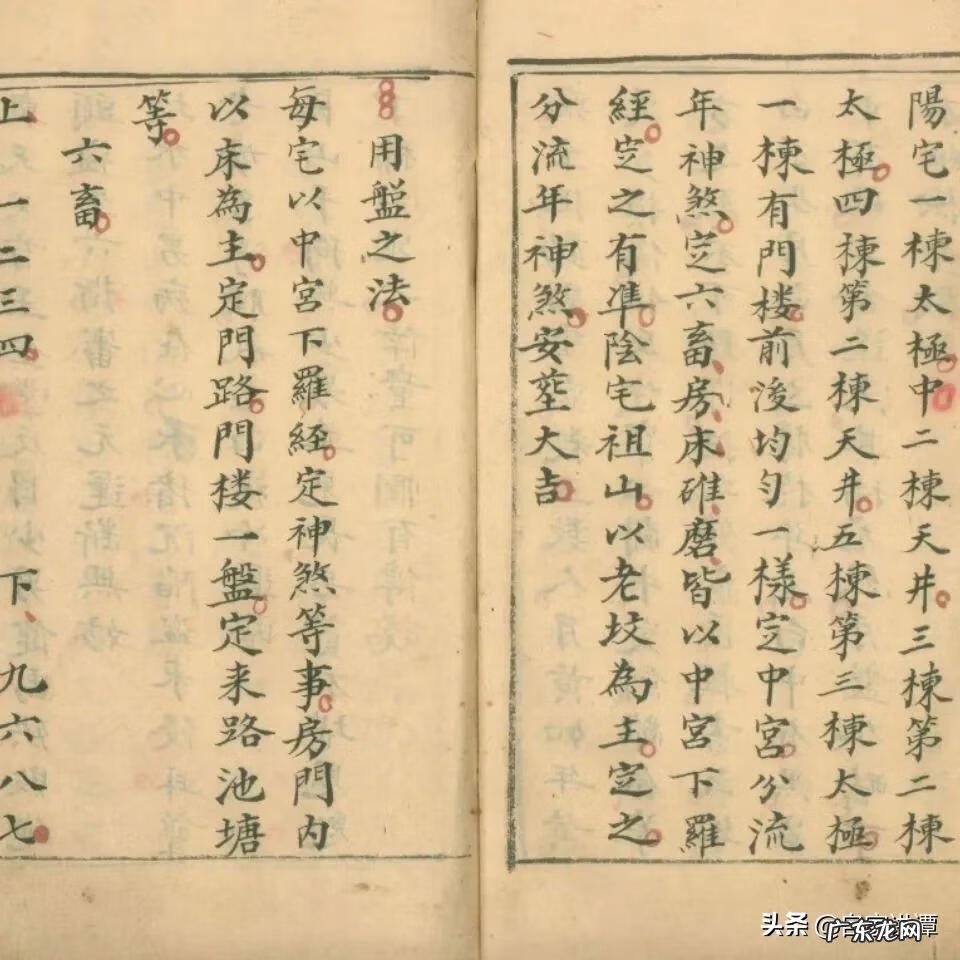 陽宅一棟太極中二棟天井三棟第二棟
太極四棟第二棟天井五棟第三棟太極
一棟有門楼前後均勻一樣定中宮分流
年神煞定六畜房床碓磨皆以中宮下羅
經定之有準陰宅祖山以老坟為主定之
分流年神煞安塟大吉
用盤之法
每宅以中宮下羅經定神煞等事房門内
以床為主定門路門楼一盤定来路池塘
等
六畜
上一二三四 下九六八七
头条
广东龙网